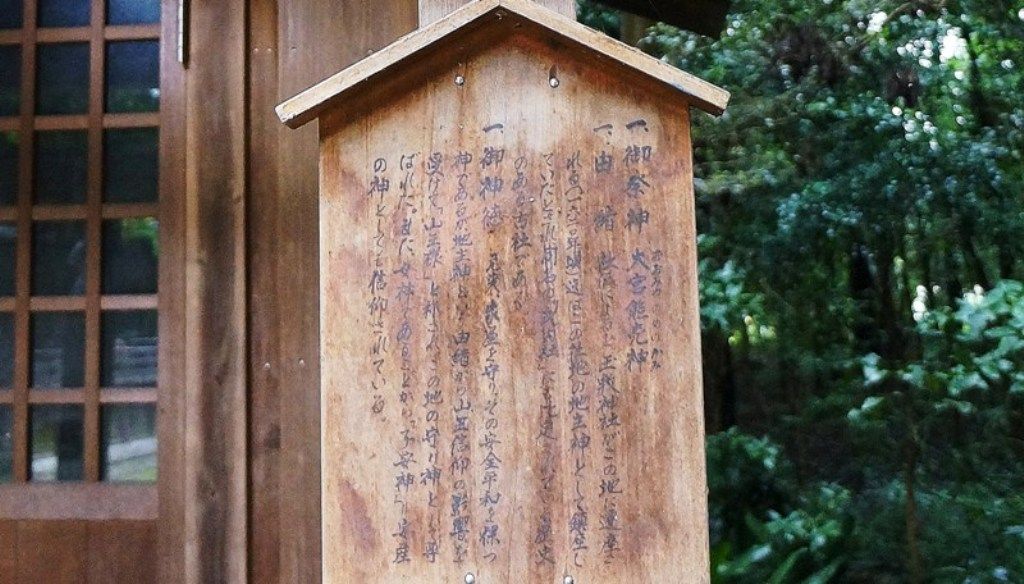 一、御祭神 大宮能売神
おおみやのめのかみ
一、由 緒 社伝によると 玉敷神社がこの地に遷座
れる(一六二〇年頃)迄は この社地の地主神として鎮座し
ていたとされ 同名の式内社 の 歴史
のある古社である
一、御神徳 を守り その安全平和を保つ
神であるが 地主神という由緒から 山王信仰の影響を
受けて「山王様」と称 この地の守り神として尊
ばれた。また 女神 であることから 子安神 安産
の神としても信仰されている。